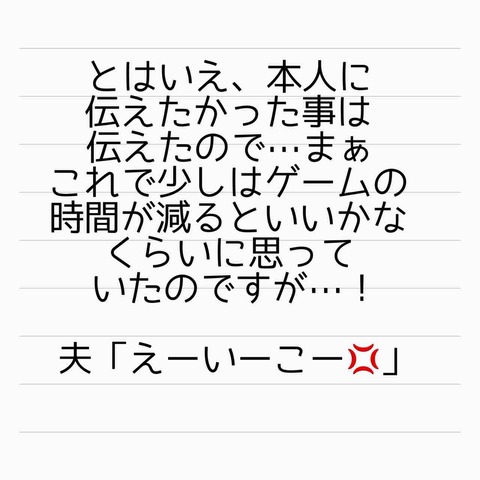 とはいえ、本人に
伝えたかった事は
伝えたので…まぁ
これで少しはゲームの
時間が減るといいかな
くらいに思って
いたのですが…！
夫「えーいーこー💢」